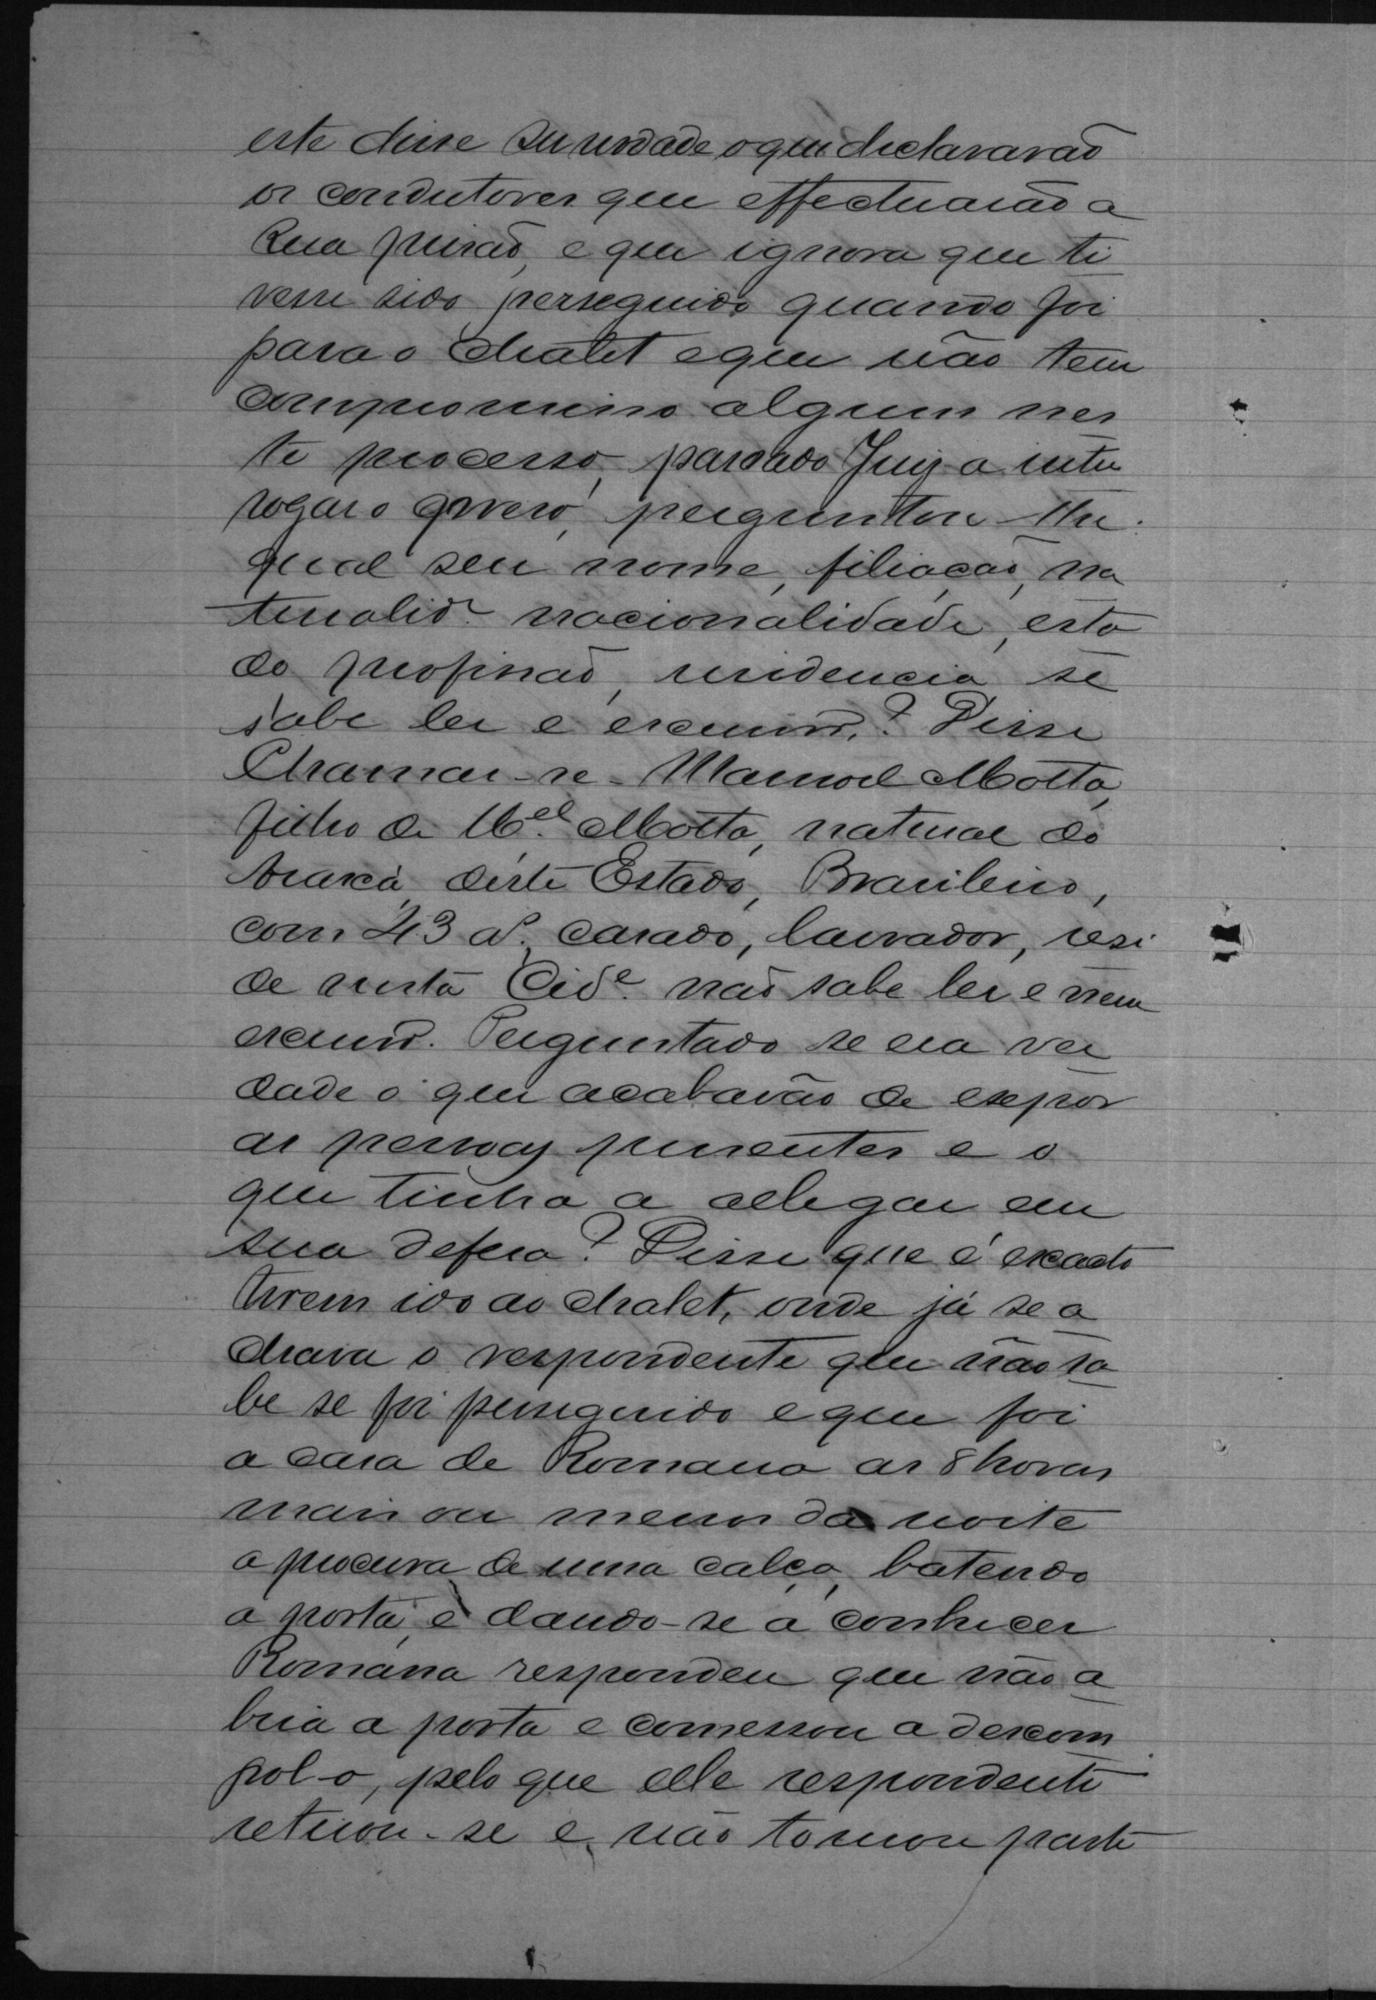 este disse ser verdade o que declararão
os condutores que effectuarão a
sua prisão, e que ignora que ti
vesse sido perseguido quando foi
para o chalet e que não tem
compromisso algum nes
te processo, passado Juiz a inter
rogar o preso, perguntou-lhe
qual seu nome, filiação, na
turalid.e nacionalidade, esta
do profissão, residencia se
sabe ler e escrever? Disse
Chamar-se Manoel Motta,
filho de M.el Motta, natural do
Araxá, deste Estado, Brasileiro,
com 43 a.s casado, lavrador, resi
de nesta Cid.e não sabe ler e nem
escrever. Perguntado se era ver
dade o que acabavão de expor
as pessoas presentes e o
que tinha a allegar em
sua defesa? Disse que é exacto
terem ido ao chalet, onde já se a
chava o respondente que não sa
be se foi perseguido e que foi
a casa de Romana as 8 horas
mais ou menos da noite
a procura de uma calça, batendo
a porta e dando-se a conhecer
Romana respondeu que não a
bria a porta e comessou a descom
pol-o, pelo que elle respondente
retirou-se e não tomou parte